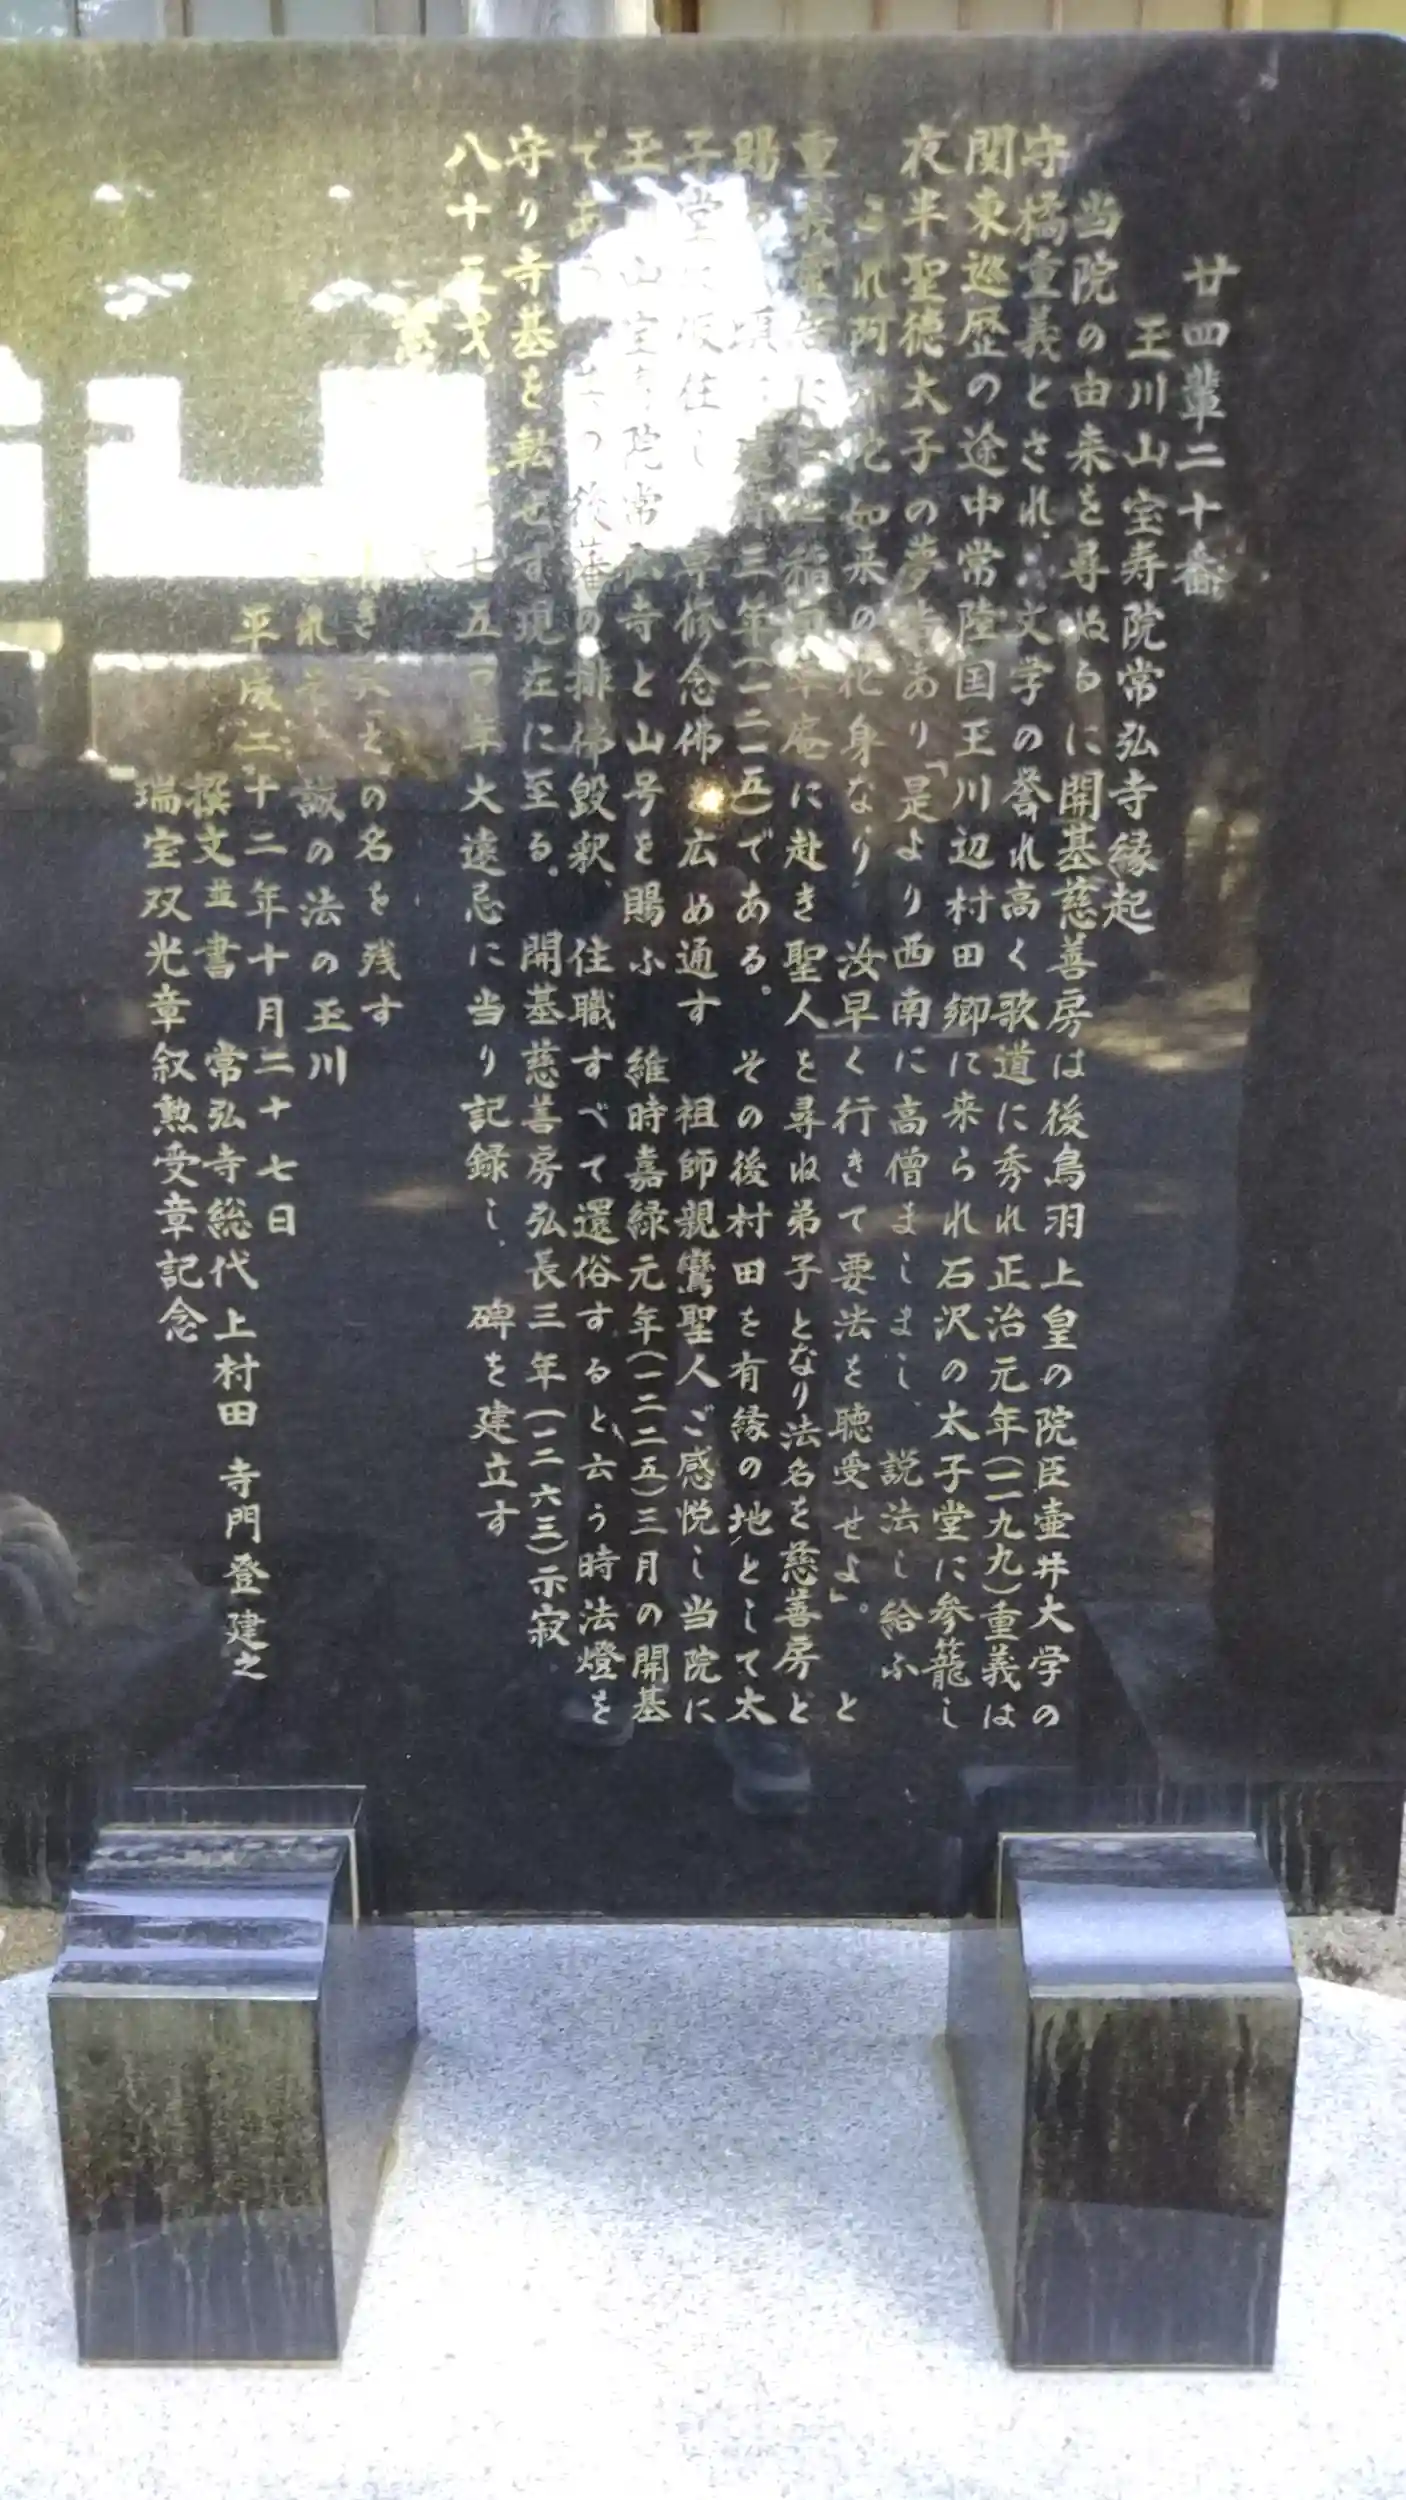 廿四輩二十番
玉川山宝寿院常弘寺縁起
当院の由来を尋ぬるに開基慈善房は後鳥羽上皇の院臣壷井大学の
守橘重義とされ、文学の誉れ高く歌道に秀れ正治元年(一一九九)重義は
関東巡歴の途中常陸国玉川辺村田郷に来られ石沢の太子堂に参籠し
夜半聖徳太子の夢告あり「是より西南に高僧ましまし、説法し給ふ
これ阿弥陀如来の化身なり 汝早く行きて要法を聴受せよ」。と
重義 に 稲田草庵に赴き聖人を尋ね弟子となり法名を慈善房と
賜 頃 建保三年(一二一五)である。 その後村田を有縁の地として太
子堂に仮住し 専修念佛 広め通す 祖師親鸞聖人ご感悦し当院に
玉川山宝寿院常弘寺と山号を賜ふ 維時嘉緑元年(一二二五)三月の開基
であ その後藩の排佛毀釈、住職すべて還俗すると云う時法燈を
守り寺基を転せず現在に至る。 開基慈善房弘長三年(一二六三)示寂
八十五才 七五〇年大遠忌に当り記録し、 碑を建立す
慈 との名を残す
これぞ 誠の法の玉川
平成二十二年十月二十七日
撰文並書 常弘寺総代 上村田 寺門登建之
瑞宝双光章叙勲受章記念